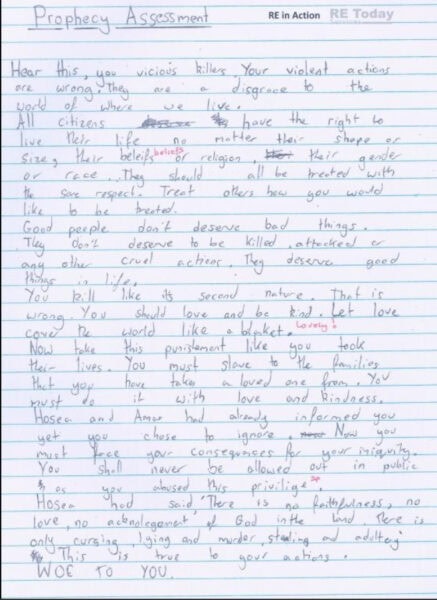 Prophecy Assessment
RE in Action RE Today
Hear this, you vicious killers. Your violent actions
are wrong. They are a disgrace to the
world of where we live.
All citizens have the right to
live their life no matter their shape or
size, their beleifs beliefs or religion, their gender
or race. They should all be treated with
the same respect. Treat others how you would
like to be treated.
Good people don't deserve bad things.
They don't deserve to be killed, attacked or
any other cruel actions. They deserve good
things in life.
You kill like its second nature. That is
wrong. You should love and be kind. Let love
cover the world like a blanket. Lovely!
Now take this punishment like you took
their lives. You must slave to the families
that you have taken a loved one from. You
must do it with love and kindness.
Hosea and Amos had already informed you
yet you chose to ignore. Now you
must face your consequences for your iniquity.
You shall never be allowed out in public
as you abused this privilige. sp
Hosea had said, 'There is no faithfulness, no
love, no acknolegement of God in the land. There is
only cursing, lying and murder, stealing and adultery'
This is true to your actions.
WOE TO YOU.